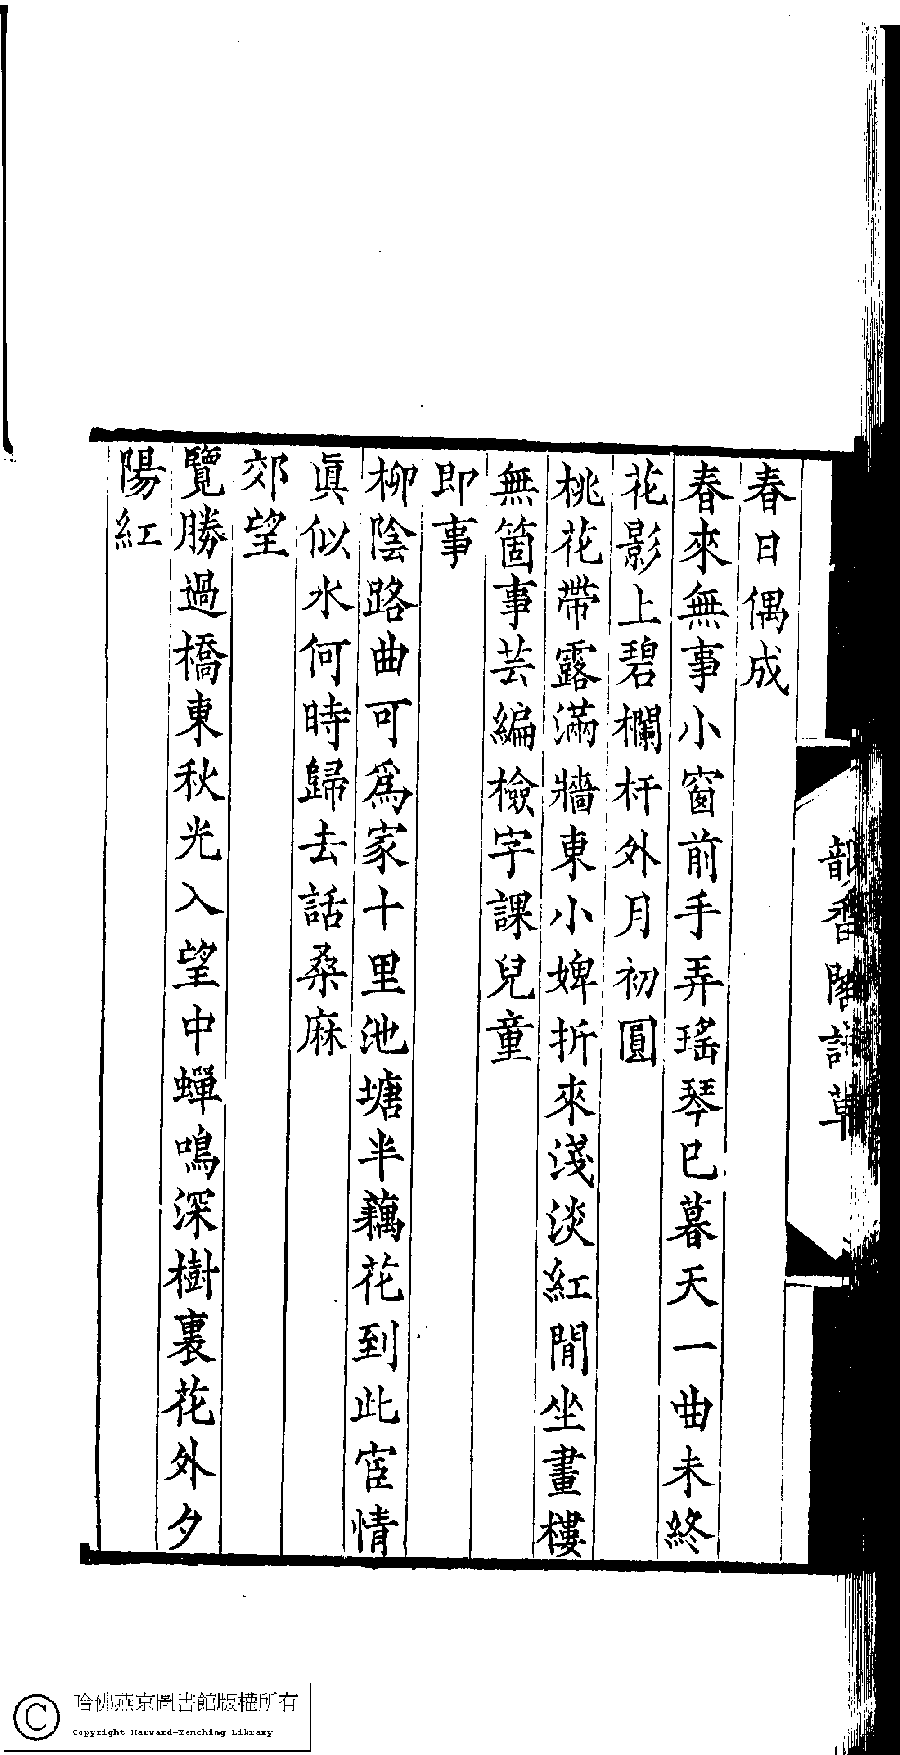 春日偶成
春來無事小窗前手弄瑤琴已暮天一曲未終
花影上碧欄杆外月初圓
桃花帶露滿牆東小婢折來淺淡紅閒坐畫樓
無箇事芸編檢字課兒童
即事
柳陰路曲可爲家十里池塘半藕花到此宦情
眞似水何時歸去話桑麻
郊望
覽勝過橋東秋光入望中蟬鳴深樹裏花外夕
陽紅
韻香閣詩草
哈佛燕京圖書館版權所有
Copyright Harvard-Yenching Library